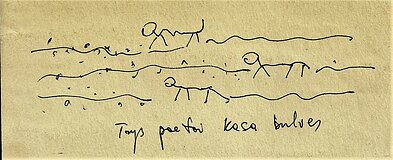 Trys poetai kasa bulves